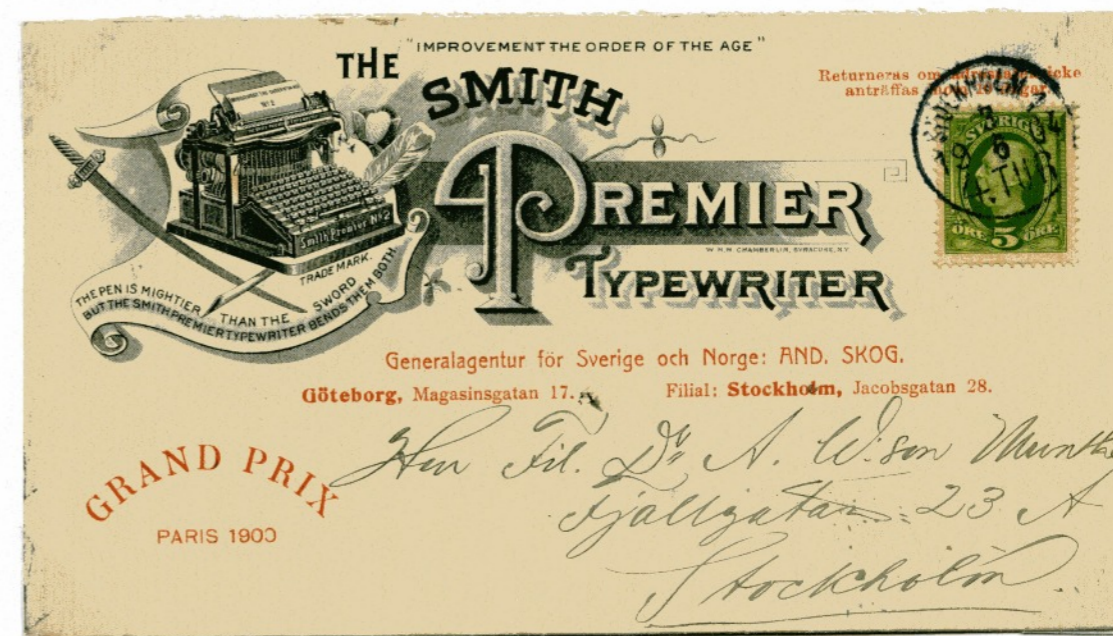 "IMPROVEMENT THE ORDER OF THE AGE"
THE
SMITH
PREMIER
TYPEWRITER
W.H.H. CHAMBERLIN, SYRACUSE, N.Y.
Smith Premier No 2
TRADE MARK.
THE PEN IS MIGHTIER THAN THE SWORD
BUT THE SMITH PREMIER TYPEWRITER BENDS THEM BOTH
Returneras om icke
anträffas
STOCKHOLM
SVERIGE
ÖRE 5 ÖRE
Generalagentur för Sverige och Norge: AND. SKOG.
Göteborg, Magasinsgatan 17. Filial: Stockholm, Jacobsgatan 28.
GRAND PRIX
PARIS 1900
Herr Fil. Dr A. W:son Munthe
Fjällgatan 23 A
Stockholm